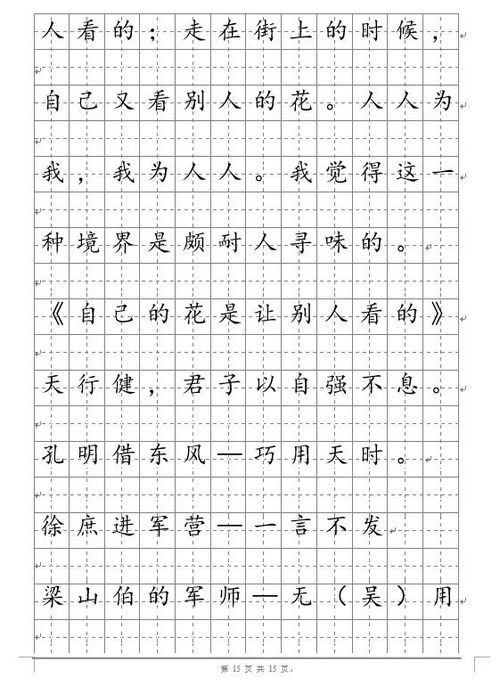 人看的；走在街上的时候，
自己又看别人的花。人人为
我，我为人人。我觉得这一
种境界是颇耐人寻味的。
《自己的花是让别人看的》
天行健，君子以自强不息。
孔明借东风—巧用天时。
徐庶进军营—一言不发
梁山伯的军师—无（吴）用
第 15 页 共 15 页。